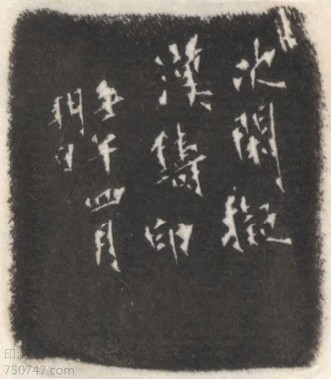 次閑擬
漢鑄印
庚午四月
朔日
750747.com